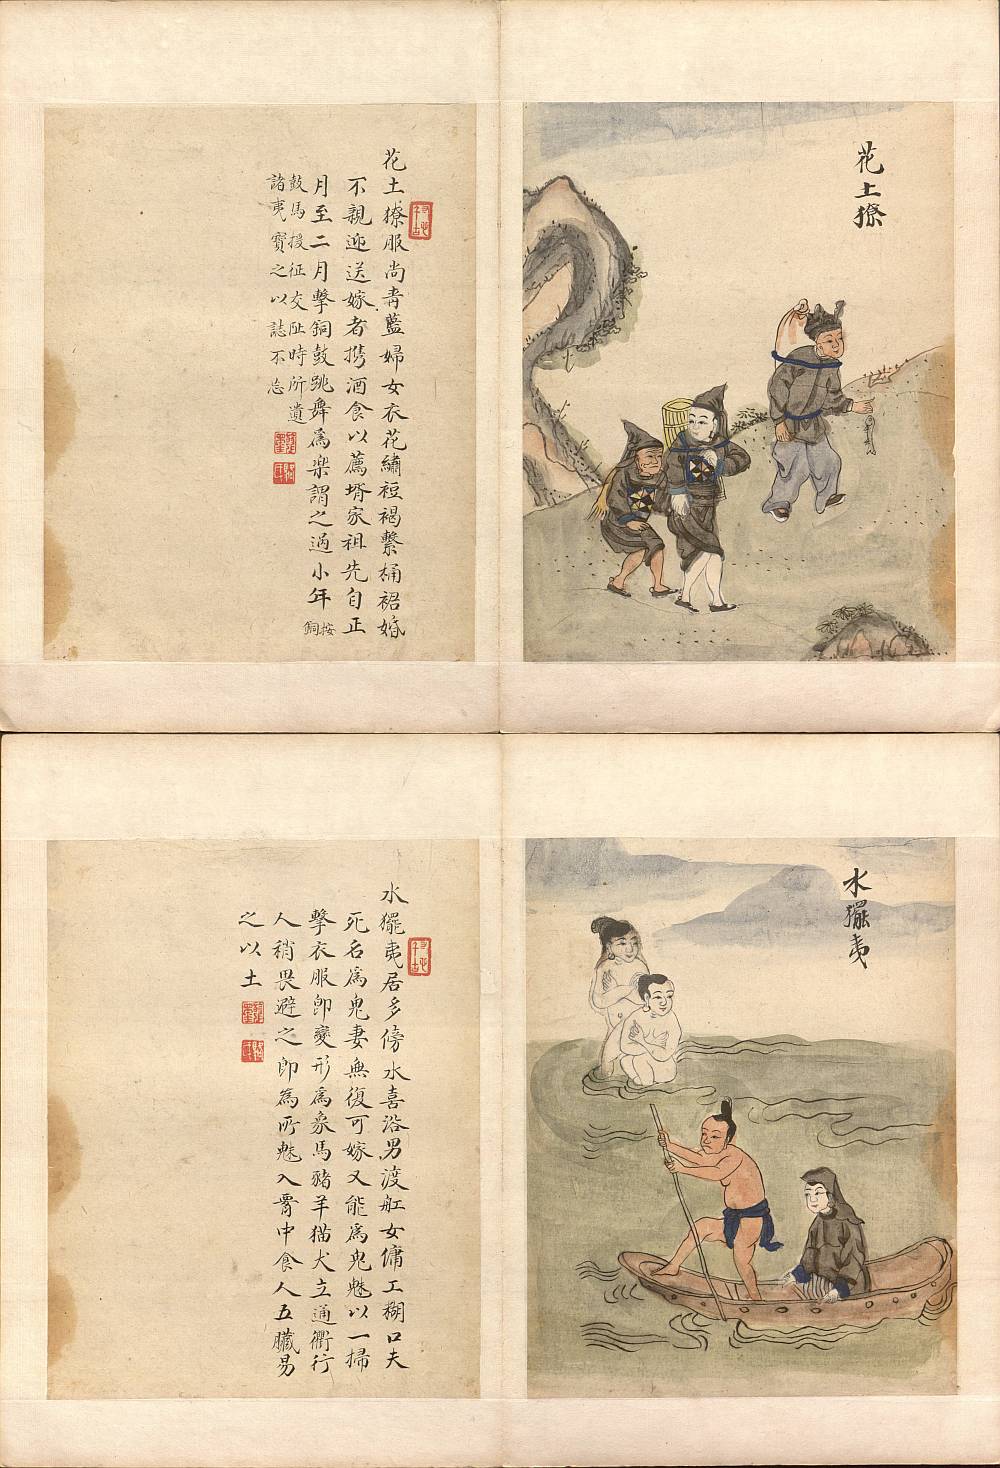 花土獠
花土獠服尚青藍婦女衣花繡裋褐繫桶裙婚
不親迎送嫁者攜酒食以薦壻家祖先自正
月至二月擊銅鼓跳舞為樂謂之過小年按銅
鼓馬援征交阯時所遺
諸夷寳之以誌不忘
水擺夷
水擺夷居多傍水喜浴男渡舡女傭工糊口夫
死名為鬼妻無復可嫁又能為鬼魅以一掃
擊衣服即變形為象馬豬羊猫犬立通衢行
人稍畏避之即為所魅入胷中食人五臟易
之以土